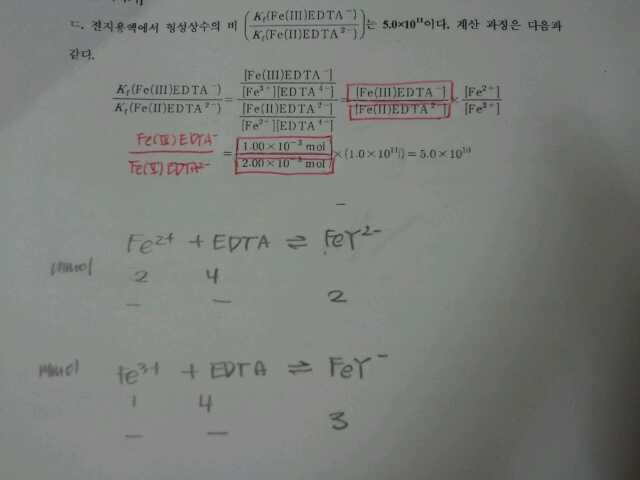 ㄷ. 전지용액에서 형성상수의 비 (Kf(Fe(III)EDTA⁻) / Kf(Fe(II)EDTA²⁻))는 5.0×10¹¹이다. 계산 과정은 다음과
같다.
Kf(Fe(III)EDTA⁻) / Kf(Fe(II)EDTA²⁻) = ([Fe(III)EDTA⁻] / [Fe³⁺][EDTA⁴⁻]) / ([Fe(II)EDTA²⁻] / [Fe²⁺][EDTA⁴⁻]) = [Fe(III)EDTA⁻] / [Fe(II)EDTA²⁻] × [Fe²⁺] / [Fe³⁺]
Fe(III)EDTA⁻ / Fe(II)EDTA²⁻ = 1.00×10⁻³ mol / 2.00×10⁻³ mol × (1.0×10¹¹) = 5.0×10¹⁰
Fe²⁺ + EDTA ⇌ FeY²⁻
mmol 2 4
— — 2
mmol Fe³⁺ + EDTA ⇌ FeY⁻
1 4
— — 3